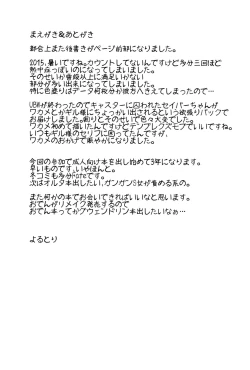 まえがき&あとがき
都合上また後書きがページ前部になりました。
2015,暑いですね。カウントしてないんですけど多分三回ほど
熱中症っぽいのになってしまいました。
そのせいか普段以上に満足いかない
部分が多い出来になってしまいました。
特に色塗りはデータ何枚分か彼方へ消えてしまったので…
UBWが終わったのでキャスターに囚われたセイバーちゃんが
ワカメとかギル様にちょっかい出されるという欲張りパックで
お届けしました。割りとそのせいで色々大変でした。
ワカメ初めて描いたんですけどテンプレクズモブでいいですね。
いつもギル様のセリフに困ってたんですが、
ワカメのおかげで賑やかになりました。
今回の参加で成人向け本を出し始めて3年になります。
早いものです。いやほんと。
冬コミも多分Fateです。
次はオルタ本出したい。ガンガンSゼが責める系の。
また何かの本でお会いできればいいなと思います。
おでんがリメイク発売するので
おでん本ってかグウェンドリン本出したいなぁ…
よるとり